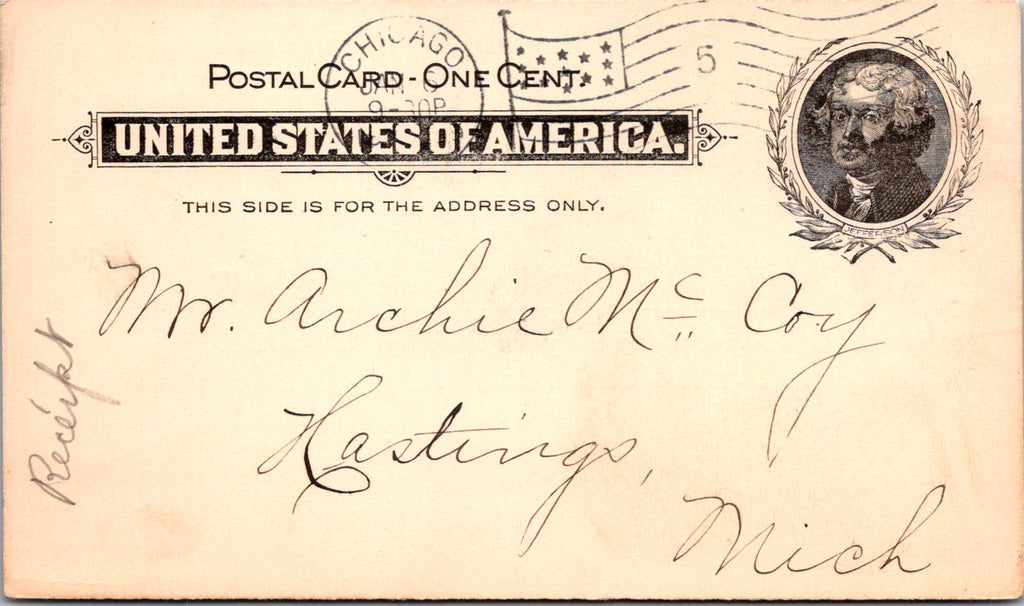 CHICAGO
JAN 6
9-30P
5
POSTAL CARD - ONE CENT.
UNITED STATES OF AMERICA.
THIS SIDE IS FOR THE ADDRESS ONLY.
JEFFERSON
Mr. Archie Mc Coy
Hastings,
Mich
Receipt